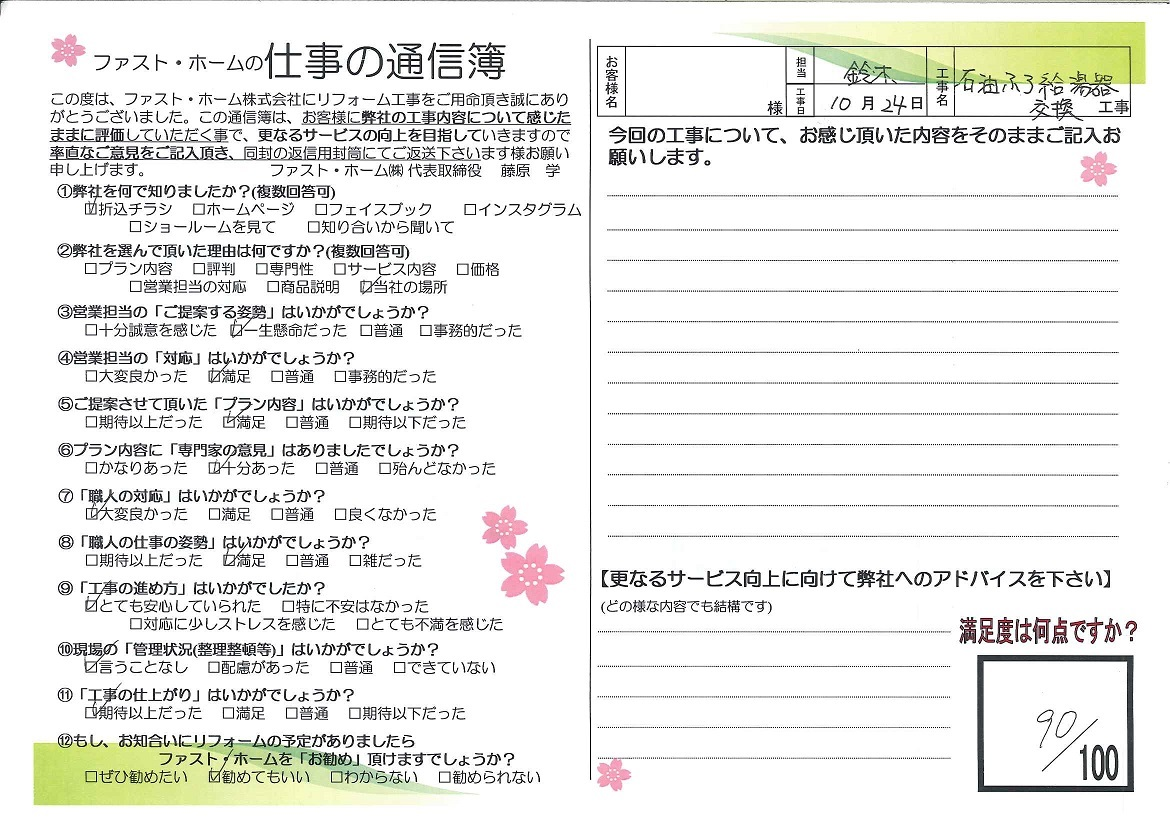 ファスト・ホームの仕事の通信簿
この度は、ファスト・ホーム株式会社にリフォーム工事をご用命頂き誠にあり
がとうございました。この通信簿は、お客様に弊社の工事内容について感じた
ままに評価していただく事で、更なるサービスの向上を目指していきますので
率直なご意見をご記入頂き、同封の返信用封筒にてご返送下さいます様お願い
申し上げます。 ファスト・ホーム㈱ 代表取締役 藤原 学
①弊社を何で知りましたか?(複数回答可)
☑折込チラシ □ホームページ □フェイスブック □インスタグラム
□ショールームを見て □知り合いから聞いて
②弊社を選んで頂いた理由は何ですか?(複数回答可)
□プラン内容 □評判 □専門性 □サービス内容 □価格
□営業担当の対応 □商品説明 ☑当社の場所
③営業担当の「ご提案する姿勢」はいかがでしょうか?
□十分誠意を感じた ☑一生懸命だった □普通 □事務的だった
④営業担当の「対応」はいかがでしょうか?
□大変良かった ☑満足 □普通 □事務的だった
⑤ご提案させて頂いた「プラン内容」はいかがでしょうか?
□期待以上だった ☑満足 □普通 □期待以下だった
⑥プラン内容に「専門家の意見」はありましたでしょうか?
□かなりあった ☑十分あった □普通 □殆んどなかった
⑦「職人の対応」はいかがでしょうか?
☑大変良かった □満足 □普通 □良くなかった
⑧「職人の仕事の姿勢」はいかがでしょうか?
□期待以上だった ☑満足 □普通 □雑だった
⑨「工事の進め方」はいかがでしたか?
☑とても安心していられた □特に不安はなかった
□対応に少しストレスを感じた □とても不満を感じた
⑩現場の「管理状況(整理整頓等)」はいかがでしょうか?
☑言うことなし □配慮があった □普通 □できていない
⑪「工事の仕上がり」はいかがでしょうか?
☑期待以上だった □満足 □普通 □期待以下だった
⑫もし、お知合いにリフォームの予定がありましたら
ファスト・ホームを「お勧め」頂けますでしょうか?
□ぜひ勧めたい ☑勧めてもいい □わからない □勧められない
お客様名 様 担当 鈴木 工事名 石油ふろ給湯器
工事日 10月24日 交換 工事
今回の工事について、お感じ頂いた内容をそのままご記入お
願いします。
【更なるサービス向上に向けて弊社へのアドバイスを下さい】
(どの様な内容でも結構です)
満足度は何点ですか?
90/100